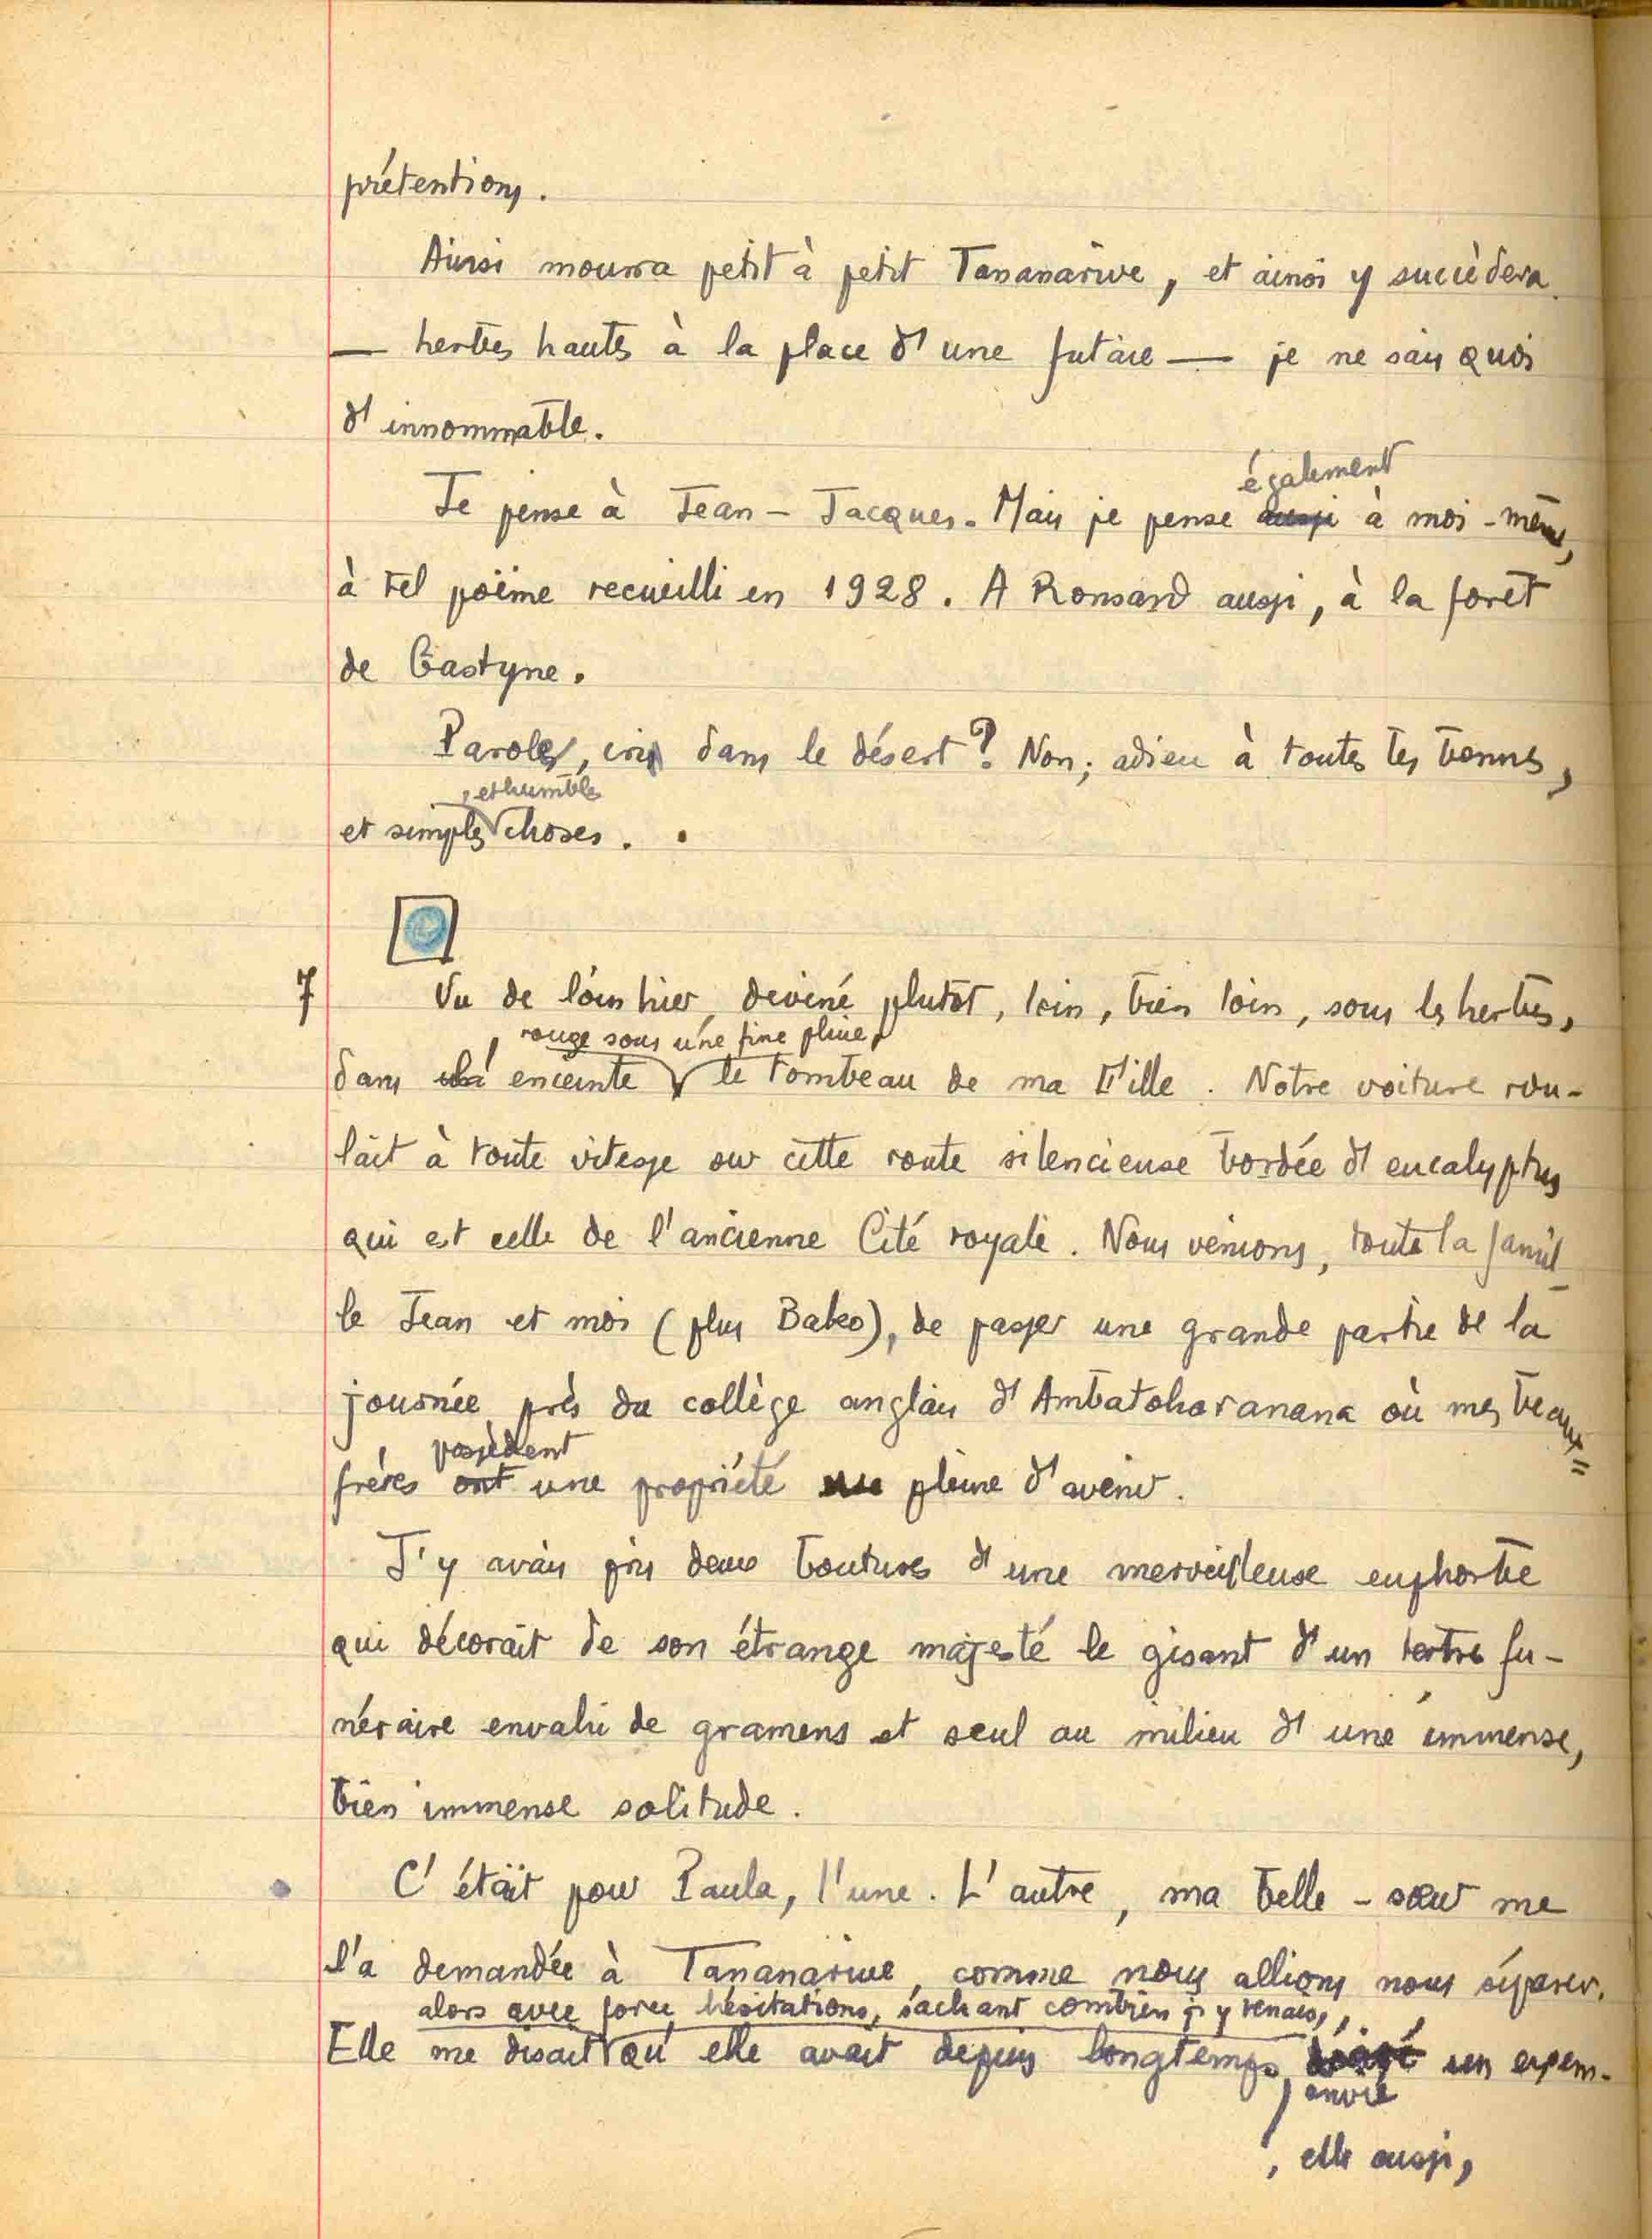 prétentions.
Ainsi mourra petit à petit Tananarive, et ainsi y succèdera
— herbes hautes à la place d'une futaie — je ne sais quoi
d'innommable.
également
Je pense à Jean-Jacques. Mais je pense aussi à moi-même,
à tel poème recueilli en 1928. A Ronsard aussi, à la forêt
de Gastyne.
Paroles, cris dans le désert ? Non ; adieu à toutes les bonnes,
, et humbles
et simples choses.
7 Vu de loin hier, deviné plutôt, loin, bien loin, sous les herbes,
, rouge sous une fine pluie,
dans enceinte le tombeau de ma Fille. Notre voiture rou-
lait à toute vitesse sur cette route silencieuse bordée d'eucalyptus
qui est celle de l'ancienne Cité royale. Nous venions, toute la famil-
le Jean et moi (plus Bako), de passer une grande partie de la
journée, près du collège anglais d'Ambatoharanana où mes beaux=
possèdent
frères ont une propriété pleine d'avenir.
J'y avais pris deux boutures d'une merveilleuse euphorbe
qui décorait de son étrange majesté le gisant d'un tertre fu-
néraire envahi de gramens et seul au milieu d'une immense,
bien immense solitude.
C'était pour Paula, l'une. L'autre, ma belle-sœur me
l'a demandée à Tananarive, comme nous allions nous séparer.
alors avec force hésitations, sachant combien j'y tenais,
Elle me disait qu'elle avait depuis longtemps un exem-
envié
, elle aussi,